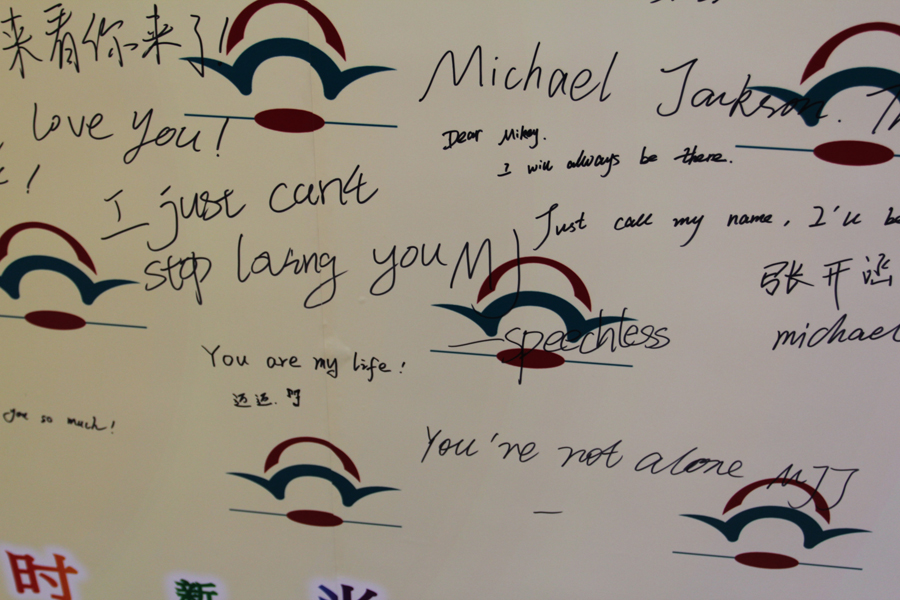 来看你来了!
Michael Jackson. Th
love you!
Dear Mikey.
I will always be there.
I just can't
Just call my name, I'll be
stop loving you MJ
张开
—speechless
michael
You are my life!
迈迈.
you so much!
You're not alone MJJ
时 新